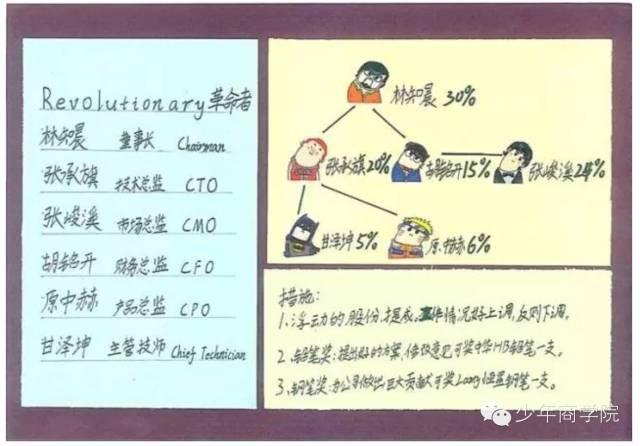 Revolutionary 革命者
林知晨 董事长 Chairman
张承旗 技术总监 CTO
张峻溪 市场总监 CMO
胡铭开 财务总监 CFO
原中赫 产品总监 CPO
甘泽坤 主管技师 Chief Technician
林知晨 30%
张承旗 20%
胡铭开 15%
张峻溪 24%
甘泽坤 5%
原中赫 6%
措施:
1、浮动的股份提成。工作情况好上调,反则下调。
2、铅笔奖:提出好的方案、修改意见可奖中华HB铅笔一支。
3、钢笔奖:为公司做出巨大贡献可奖Lamy钢笔一支。
少年商学院